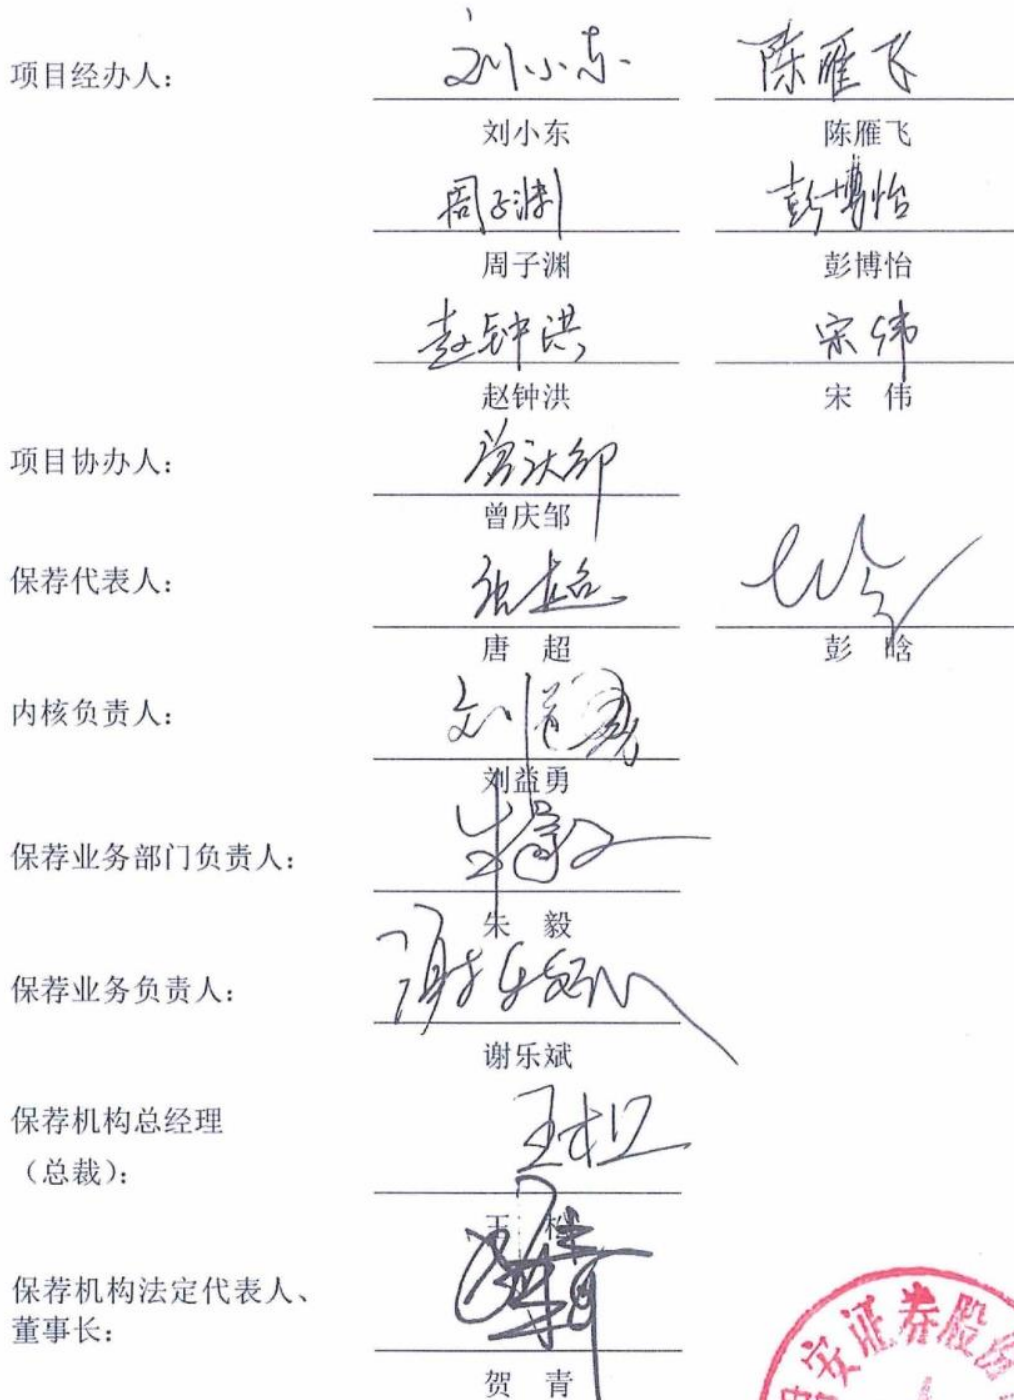 项目经办人：
刘小东 陈雁飞
刘小东 陈雁飞
周子渊 彭博怡
周子渊 彭博怡
赵钟洪 宋伟
赵钟洪 宋 伟
项目协办人：
曾庆邹
保荐代表人：
唐 超 彭 晗
内核负责人：
刘益勇
保荐业务部门负责人：
朱 毅
保荐业务负责人：
谢乐斌
保荐机构总经理
（总裁）：
王
保荐机构法定代表人、
董事长：
贺 青
安证券股份